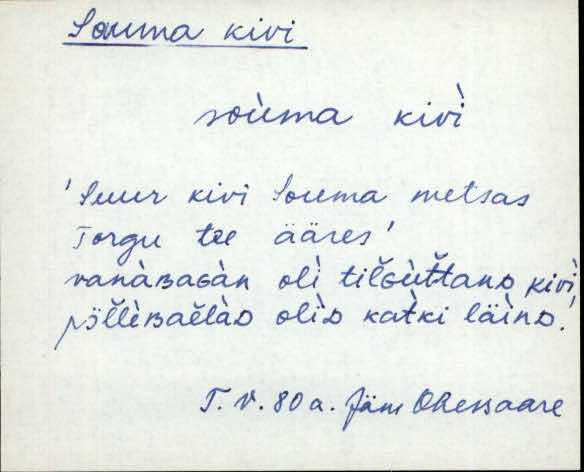 Souma kivi
soùma kivì
'Suur kivi Souma metsas
Torgu tee ääres'
vanàʙaɢàn olì tilɢùttanᴅ kivì,
põllèʙaèlàᴅ olìᴅ katki läìnᴅ.
T. V. 80 a. Jäm Ohessaare